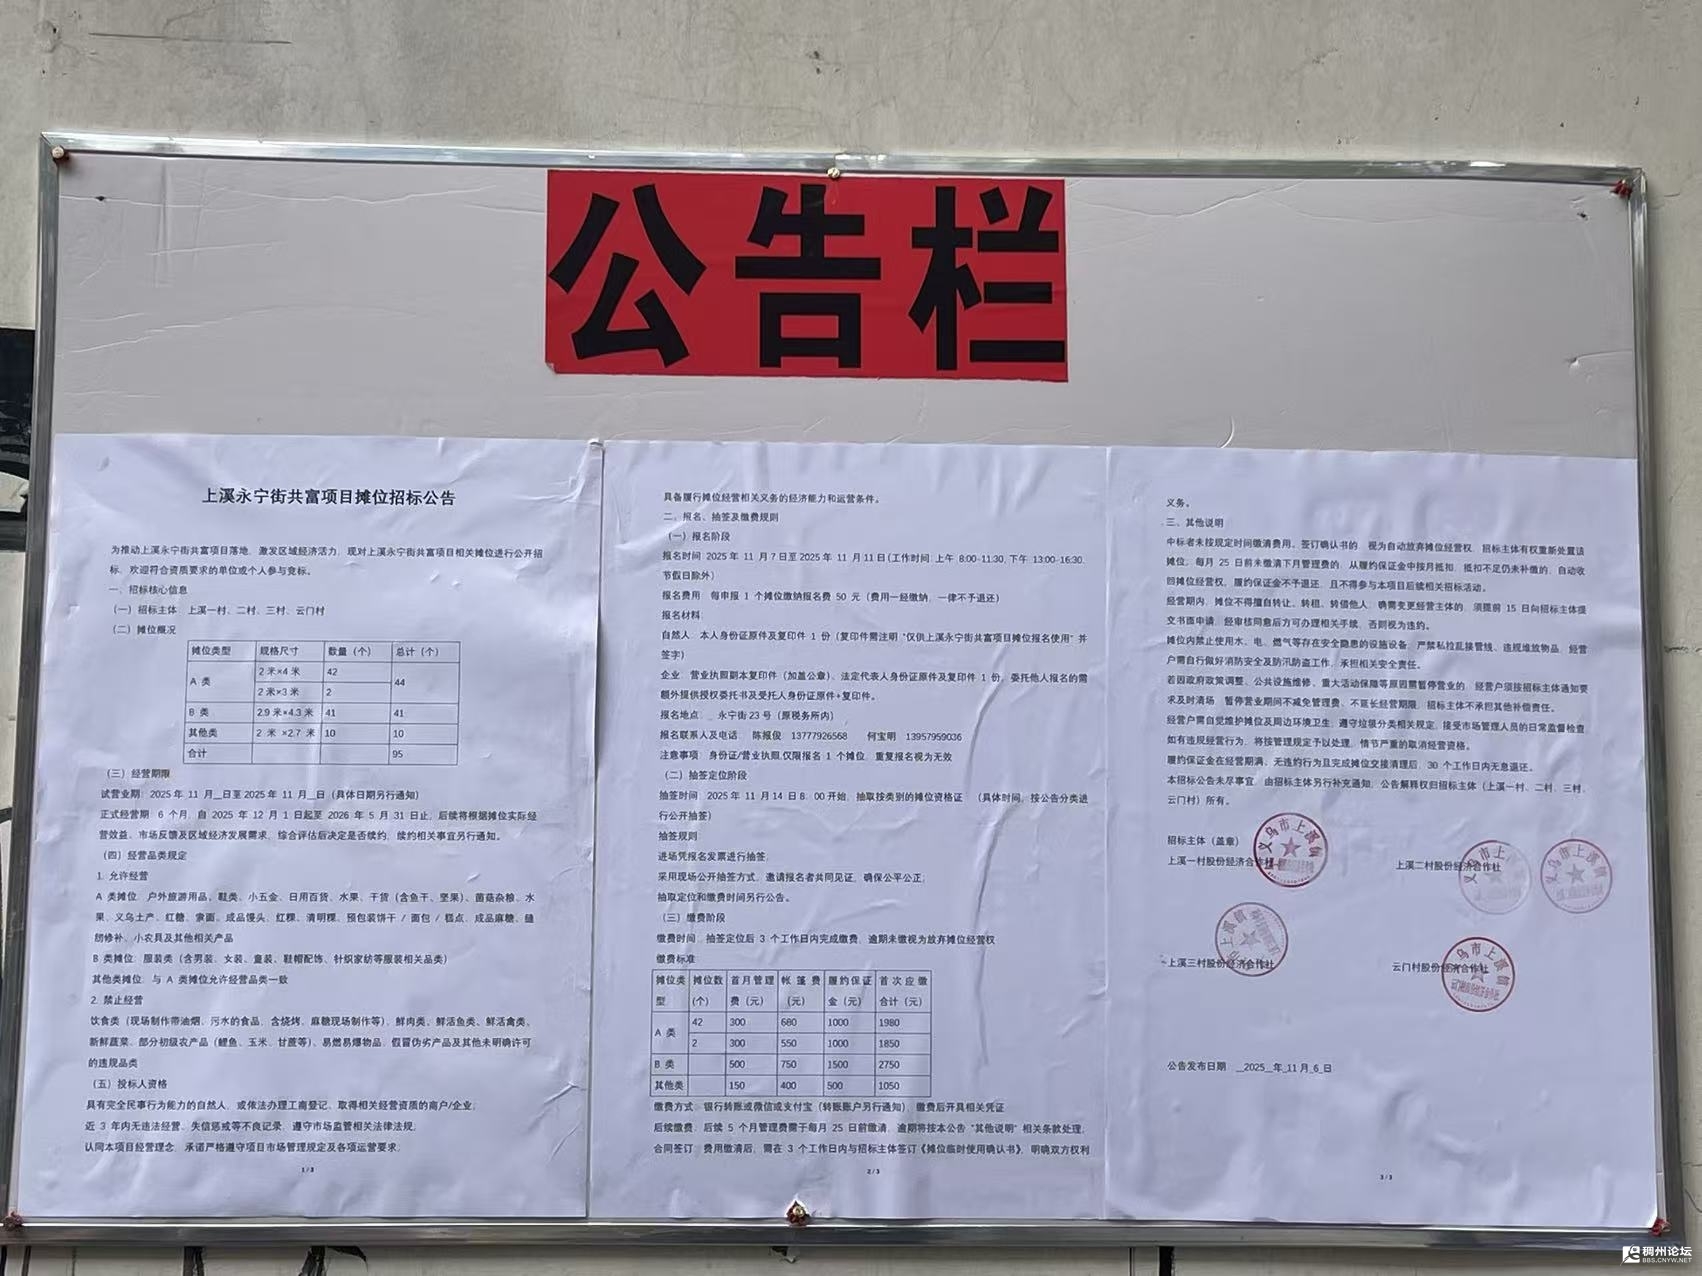 公告栏
上溪永宁街共富项目摊位招标公告
为推动上溪永宁街共富项目落地，激发区域经济活力，现对上溪永宁街共富项目相关摊位进行公开招
标，欢迎符合资质要求的单位或个人参与竞标。
一、招标核心信息
（一）招标主体：上溪一村、二村、三村、云门村
（二）摊位概况
摊位类型 规格尺寸 数量（个） 总计（个）
A 类 2 米×4 米 42 44
2 米×3 米 2
B 类 2.9 米×4.3 米 41 41
其他类 2 米 ×2.7 米 10 10
合计 95
（三）经营期限
试营业期：2025 年 11 月__日至 2025 年 11 月__日（具体日期另行通知）
正式经营期：6 个月，自 2025 年 12 月 1 日起至 2026 年 5 月 31 日止，后续将根据摊位实际经
营效益、市场反馈及区域经济发展需求，综合评估后决定是否续约，续约相关事宜另行通知。
（四）经营品类规定
1. 允许经营
A 类摊位：户外旅游用品、鞋类、小五金、日用百货、水果、干货（含鱼干、坚果）、菌菇杂粮、水
果、义乌土产、红糖、索面、成品馒头、红粿、清明粿、预包装饼干 / 面包 / 糕点、成品麻糖、缝
纫修补、小农具及其他相关产品
B 类摊位：服装类（含男装、女装、童装、鞋帽配饰、针织家纺等服装相关品类）
其他类摊位：与 A 类摊位允许经营品类一致
2. 禁止经营
饮食类（现场制作带油烟、污水的食品，含烧烤、麻糖现场制作等）、鲜肉类、鲜活鱼类、鲜活禽类、
新鲜蔬菜、部分初级农产品（鲤鱼、玉米、甘蔗等）、易燃易爆物品、假冒伪劣产品及其他未明确许可
的违规品类
（五）投标人资格
具有完全民事行为能力的自然人，或依法办理工商登记、取得相关经营资质的商户/企业；
近 3 年内无违法经营、失信惩戒等不良记录，遵守市场监管相关法律法规；
认同本项目经营理念，承诺严格遵守项目市场管理规定及各项运营要求；
1 / 3
具备履行摊位经营相关义务的经济能力和运营条件。
二、报名、抽签及缴费规则
（一）报名阶段
报名时间：2025 年 11 月 7 日至 2025 年 11 月 11 日（工作时间：上午 8:00-11:30，下午 13:00-16:30，
节假日除外）
报名费用：每申报 1 个摊位缴纳报名费 50 元（费用一经缴纳，一律不予退还）
报名材料：
自然人：本人身份证原件及复印件 1 份（复印件需注明“仅供上溪永宁街共富项目摊位报名使用”并
签字）
企业：营业执照副本复印件（加盖公章）、法定代表人身份证原件及复印件 1 份，委托他人报名的需
额外提供授权委托书及受托人身份证原件+复印件。
报名地点：永宁街 23 号（原税务所内）
报名联系人及电话：陈报俊 13777926568 何宝明 13957959036
注意事项：身份证/营业执照仅限报名 1 个摊位，重复报名视为无效
（二）抽签定位阶段
抽签时间：2025 年 11 月 14 日 8：00 开始，抽取按类别的摊位资格证 （具体时间，按公告分类进
行公开抽签）
抽签规则
进场凭报名发票进行抽签；
采用现场公开抽签方式，邀请报名者共同见证，确保公平公正；
抽取定位和缴费时间另行公告。
（三）缴费阶段
缴费时间：抽签定位后 3 个工作日内完成缴费，逾期未缴视为放弃摊位经营权
缴费标准
摊位类型 摊位数（个） 首月管理费（元） 帐篷费（元） 履约保证金（元） 首次应缴合计（元）
A 类 42 300 680 1000 1980
2 300 550 1000 1850
B 类 500 750 1500 2750
其他类 150 400 500 1050
缴费方式：银行转账或微信或支付宝（转账账户另行通知），缴费后开具相关凭证
后续缴费：后续 5 个月管理费需于每月 25 日前缴清，逾期将按本公告“其他说明”相关条款处理。
合同签订：费用缴清后，需在 3 个工作日内与招标主体签订《摊位临时使用确认书》，明确双方权利
2 / 3
义务。
三、其他说明
中标者未按规定时间缴清费用、签订确认书的，视为自动放弃摊位经营权，招标主体有权重新处置该
摊位；每月 25 日前未缴清下月管理费的，从履约保证金中按月抵扣，抵扣不足仍未补缴的，自动收
回摊位经营权，履约保证金不予退还，且不得参与本项目后续相关招标活动。
经营期内，摊位不得擅自转让、转租、转借他人，确需变更经营主体的，须提前 15 日向招标主体提
交书面申请，经审核同意后方可办理相关手续，否则视为违约。
摊位内禁止使用水、电、燃气等存在安全隐患的设施设备，严禁私拉乱接管线、违规堆放物品，经营
户需自行做好消防安全及防汛防盗工作，承担相关安全责任。
若因政府政策调整、公共设施维修、重大活动保障等原因需暂停营业的，经营户须按招标主体通知要
求及时清场，暂停营业期间不减免管理费、不延长经营期限，招标主体不承担其他补偿责任。
经营户需自觉维护摊位及周边环境卫生，遵守垃圾分类相关规定，接受市场管理人员的日常监督检查
如有违规经营行为，将按管理规定予以处理，情节严重的取消经营资格。
履约保证金在经营期满、无违约行为且完成摊位交接清理后，30 个工作日内无息退还。
本招标公告未尽事宜，由招标主体另行补充通知，公告解释权归招标主体（上溪一村、二村、三村、
云门村）所有。
招标主体（盖章）：
上溪一村股份经济合作社 上溪二村股份经济合作社
上溪三村股份经济合作社 云门村股份经济合作社
公告发布日期：__2025__年_11月_6_日
3 / 3
稠州论坛
BBS.CNYW.NET